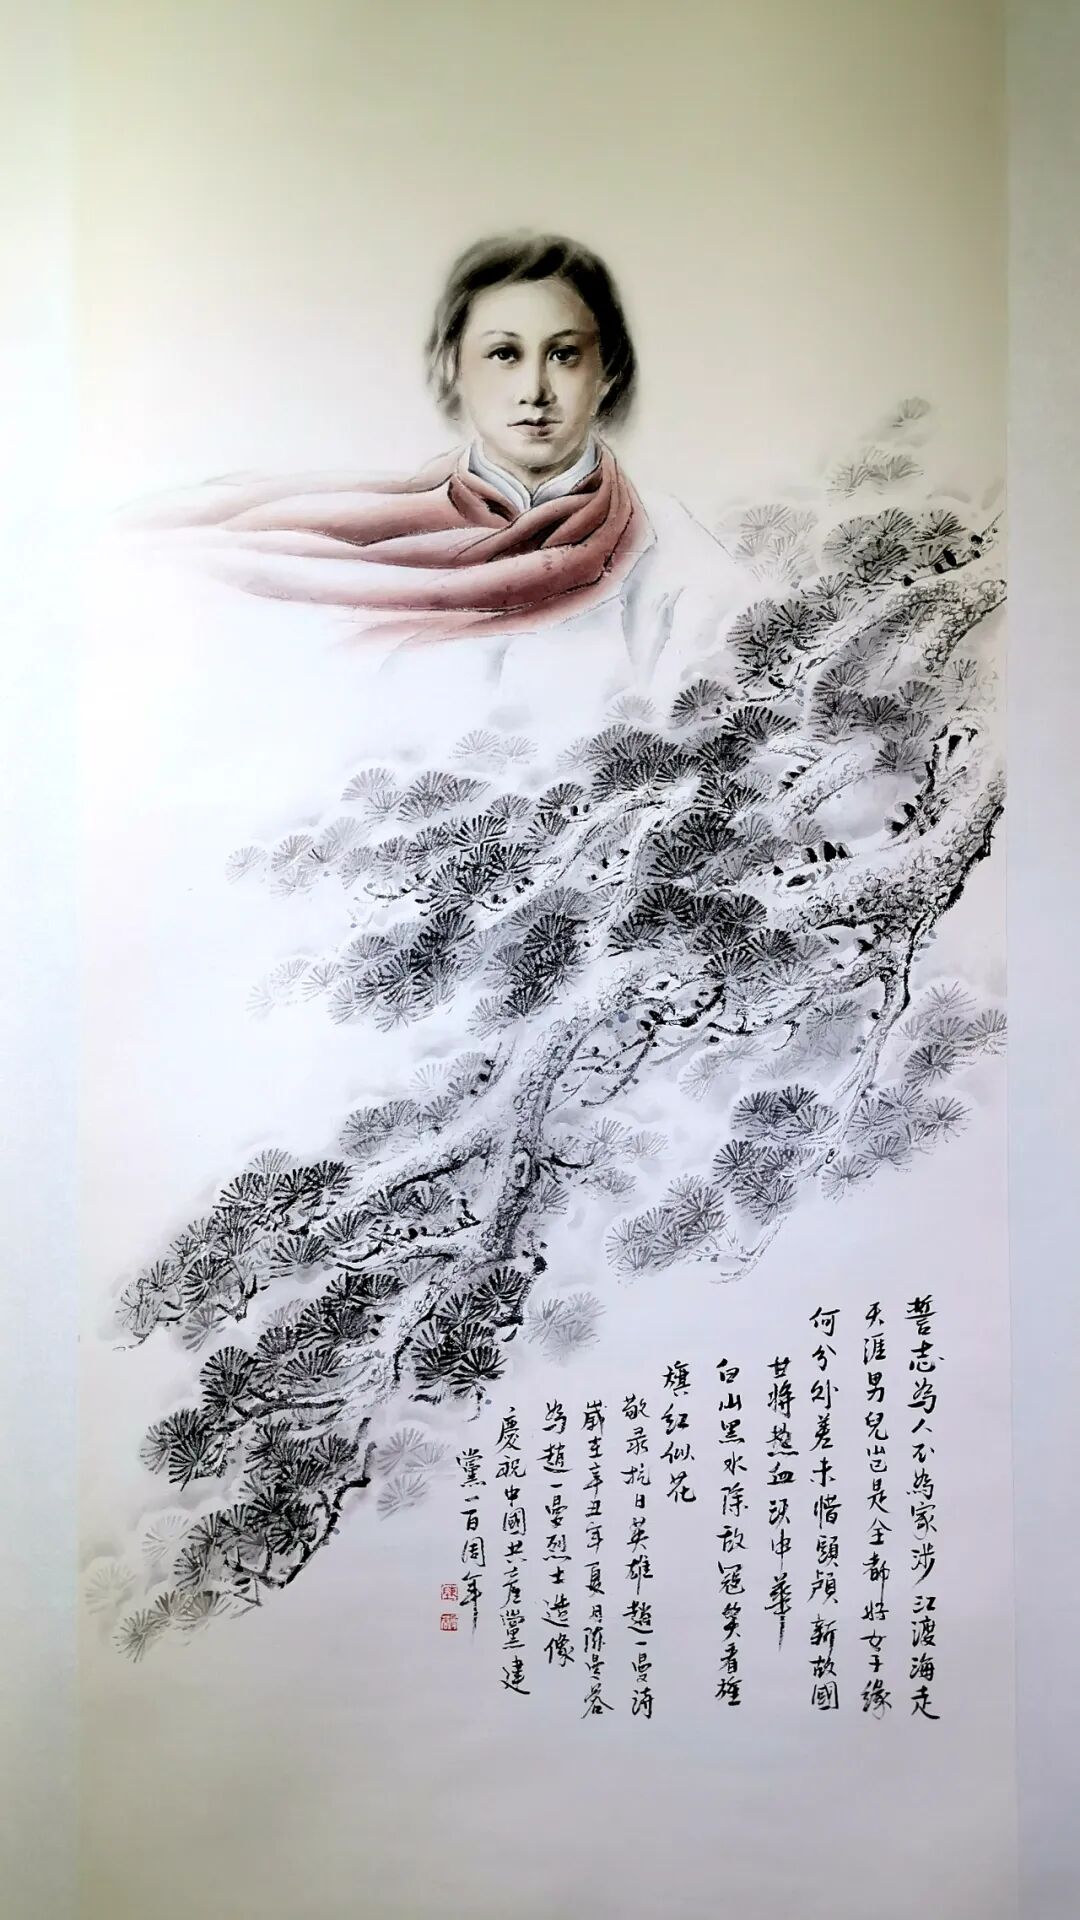 誓志為人不為家涉江渡海走
天涯男兒豈是全都好女子緣
何分外差未惜頭顱新故國
甘將熱血沃中華
白山黑水除敵寇笑看旌
旗紅似花
敬录抗日英雄趙一曼詩
歲在辛丑年夏月陈曼蓉
為趙一曼烈士造像
慶祝中國共產黨建
黨一百周年